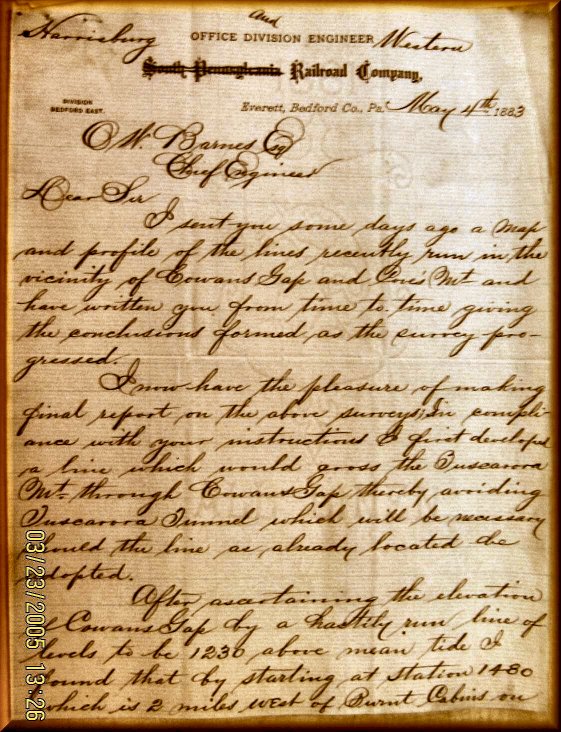 Harrisburg and Western
OFFICE DIVISION ENGINEER
South Pennsylvania Railroad Company,
DIVISION
BEDFORD EAST.
Everett, Bedford Co., Pa. May 4th 1883
O. W. Barnes Esq
Chief Engineer
Dear Sir
I sent you some days ago a map
and profile of the lines recently run in the
vicinity of Cowans Gap and Cove Mt and
have written you from time to time giving
the conclusions formed as the survey pro-
gressed.
I now have the pleasure of making
final report on the above surveys. In compli-
ance with your instructions I first developed
a line which would cross the Tuscarora
Mt. through Cowans Gap thereby avoiding
Tuscarora Tunnel which will be necessary
should the line as already located be
adopted.
After ascertaining the elevation
of Cowans Gap by a hastily run line of
levels to be 1230 above mean tide I
found that by starting at station 1480
which is 2 miles west of Burnt Cabins on
03/23/2005 13:26